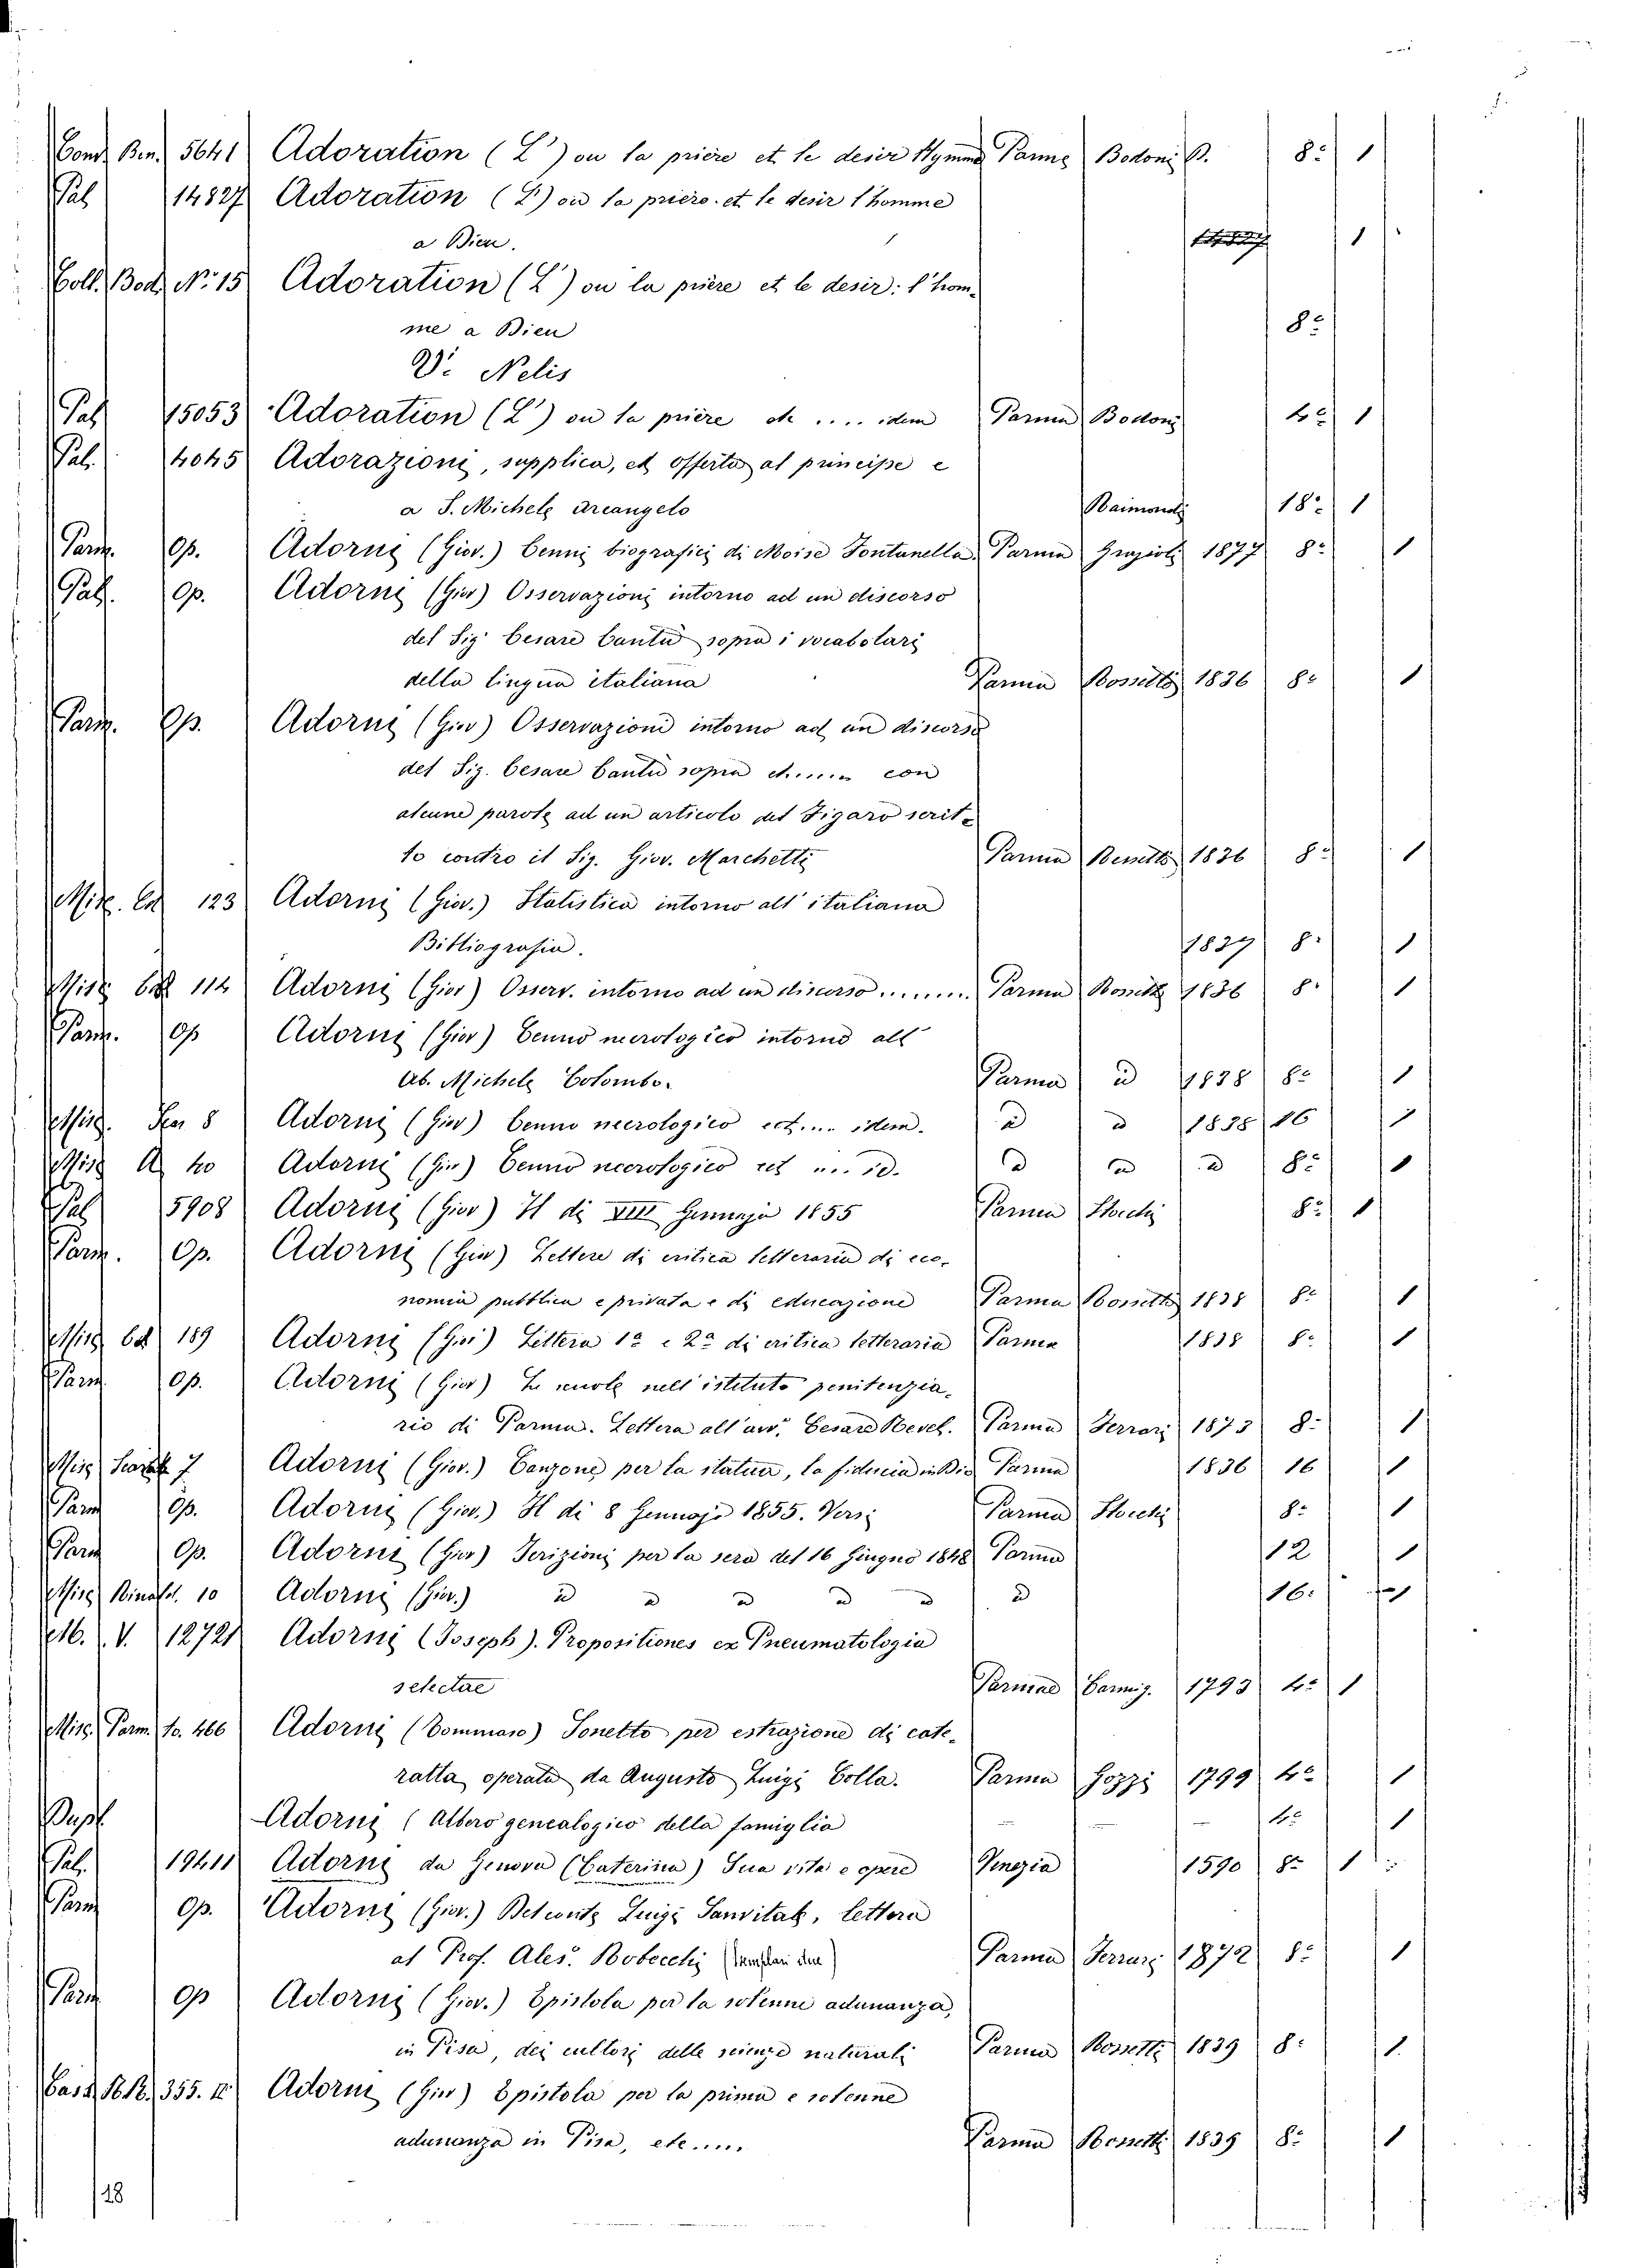 Cond. Ben. 5641 Adoration (L') ou la prière et le desir Hymne Parme Bodoni 8.° 1
Pal 14827 Adoration (L') ou la prière et le desir l'homme
a Dieu. 1
Coll. Bod. N.° 15 Adoration (L') ou la prière et le desir: l'hom-
me a Dieu 8.°
V. Nelis
Pal 15053 Adoration (L') ou la prière etc .... idem Parma Bodoni 4.° 1
Pal. 4045 Adorazioni, supplica, et offerta al principe e
a S. Michele arcangelo Raimondi 18.° 1
Parm. Op. Adorni (Giov.) Cenni biografici di Moise Fontanella Parma Grazioli 1877 8.° 1
Pal. Op. Adorni (Giov) Osservazioni intorno ad un discorso
del Sig. Cesare Cantu sopra i vocabolari
della lingua italiana Parma Rossetti 1836 8.° 1
Parm. Op. Adorni (Giov) Osservazioni intorno ad un discorso
del Sig. Cesare Cantu sopra etc..... con
alcune parole ad un articolo del Figaro scrit-
to contro il Sig. Giov. Marchetti Parma Rossetti 1836 8.° 1
Misc. 123 Adorni (Giov.) Statistica intorno all' italiana
Bibliografia. 1829 8.° 1
Misc. 114 Adorni (Giov) Osserv. intorno ad un discorso ........ Parma Rossetti 1836 8.° 1
Parm. Op Adorni (Giov) Cenno necrologico intorno all'
Ab. Michele Colombo. Parma id 1838 8.° 1
Misc. 8 Adorni (Giov) Cenno necrologico ect.... idem. id id 1838 16 1
Misc A 40 Adorni (Giov) Cenno necrologico ect .... id. id id id 8.° 1
Pal 5908 Adorni (Giov) Il di VIII Gennajo 1855 Parma Stocchi 8.° 1
Parm. Op. Adorni (Giov) Lettere di critica letteraria di eco-
nomia pubblica e privata e di educazione Parma Rossetti 1838 8.° 1
Misc 189 Adorni (Giov) Lettera 1.a e 2.a di critica letteraria Parma 1838 8.° 1
Parm. Op. Adorni (Giov) Le scuole nell'istituto penitenzia-
rio di Parma. Lettera all'avv. Cesare Parma Ferrari 1873 8.° 1
Misc 7 Adorni (Giov.) Canzone per la statua, la fiducia in Dio Parma 1836 16 1
Parm Op. Adorni (Giov.) Il di 8 Gennajo 1855. Versi Parma Stocchi 8.° 1
Parm Op. Adorni (Giov) Iscrizioni per la sera del 16 Giugno 1848 Parma 12 1
Misc. 10 Adorni (Giov.) id id id id id id 16. 1
M. V. 12721 Adorni (Joseph). Propositiones ex Pneumatologia
selectae Parmae Carmig. 1793 4.° 1
Misc. Parm. fo. 466 Adorni (Tommaso) Sonetto per estrazione di cate-
ratta operata da Augusto Luigi Colla. Parma Gozzi 1799 4.° 1
Dupl. Adorni (Albero genealogico della famiglia 4.° 1
Pal. 19411 Adorni da Genova (Caterina) Sua vita e opere Venezia 1590 8.° 1
Parm Op. Adorni (Giov.) Del conte Luigi Sanvitale, lettera
al Prof. Ales. Bobecchi Parma Ferrari 1872 8.° 1
Parm Op Adorni (Giov.) Epistola per la solenne adunanza,
in Pisa, dei cultori delle scienze naturali Parma Rossetti 1839 8.° 1
355. II Adorni (Giov) Epistola per la prima e solenne
adunanza in Pisa, etc..... Parma Rossetti 1839 8.° 1